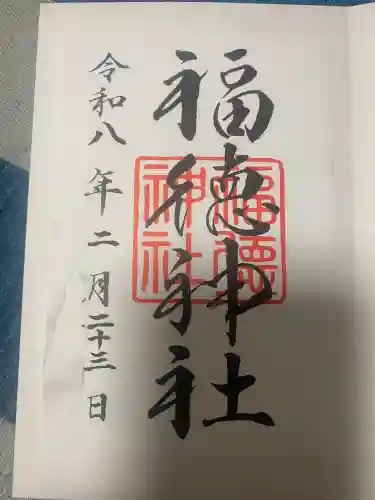 福徳神社
福徳神社
令和八年二月二十三日